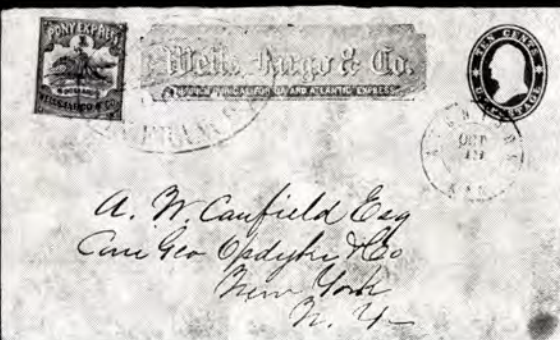 PONY EXPRESS
WELLS, FARGO & CO.
Wells, Fargo & Co.
THROUGH OUR CALIFORNIA AND ATLANTIC EXPRESS.
TEN CENTS
U.S. POSTAGE
OCT
KAN
A. W. Canfield Esq
Care Geo Opdyke & Co
New York
N. Y.